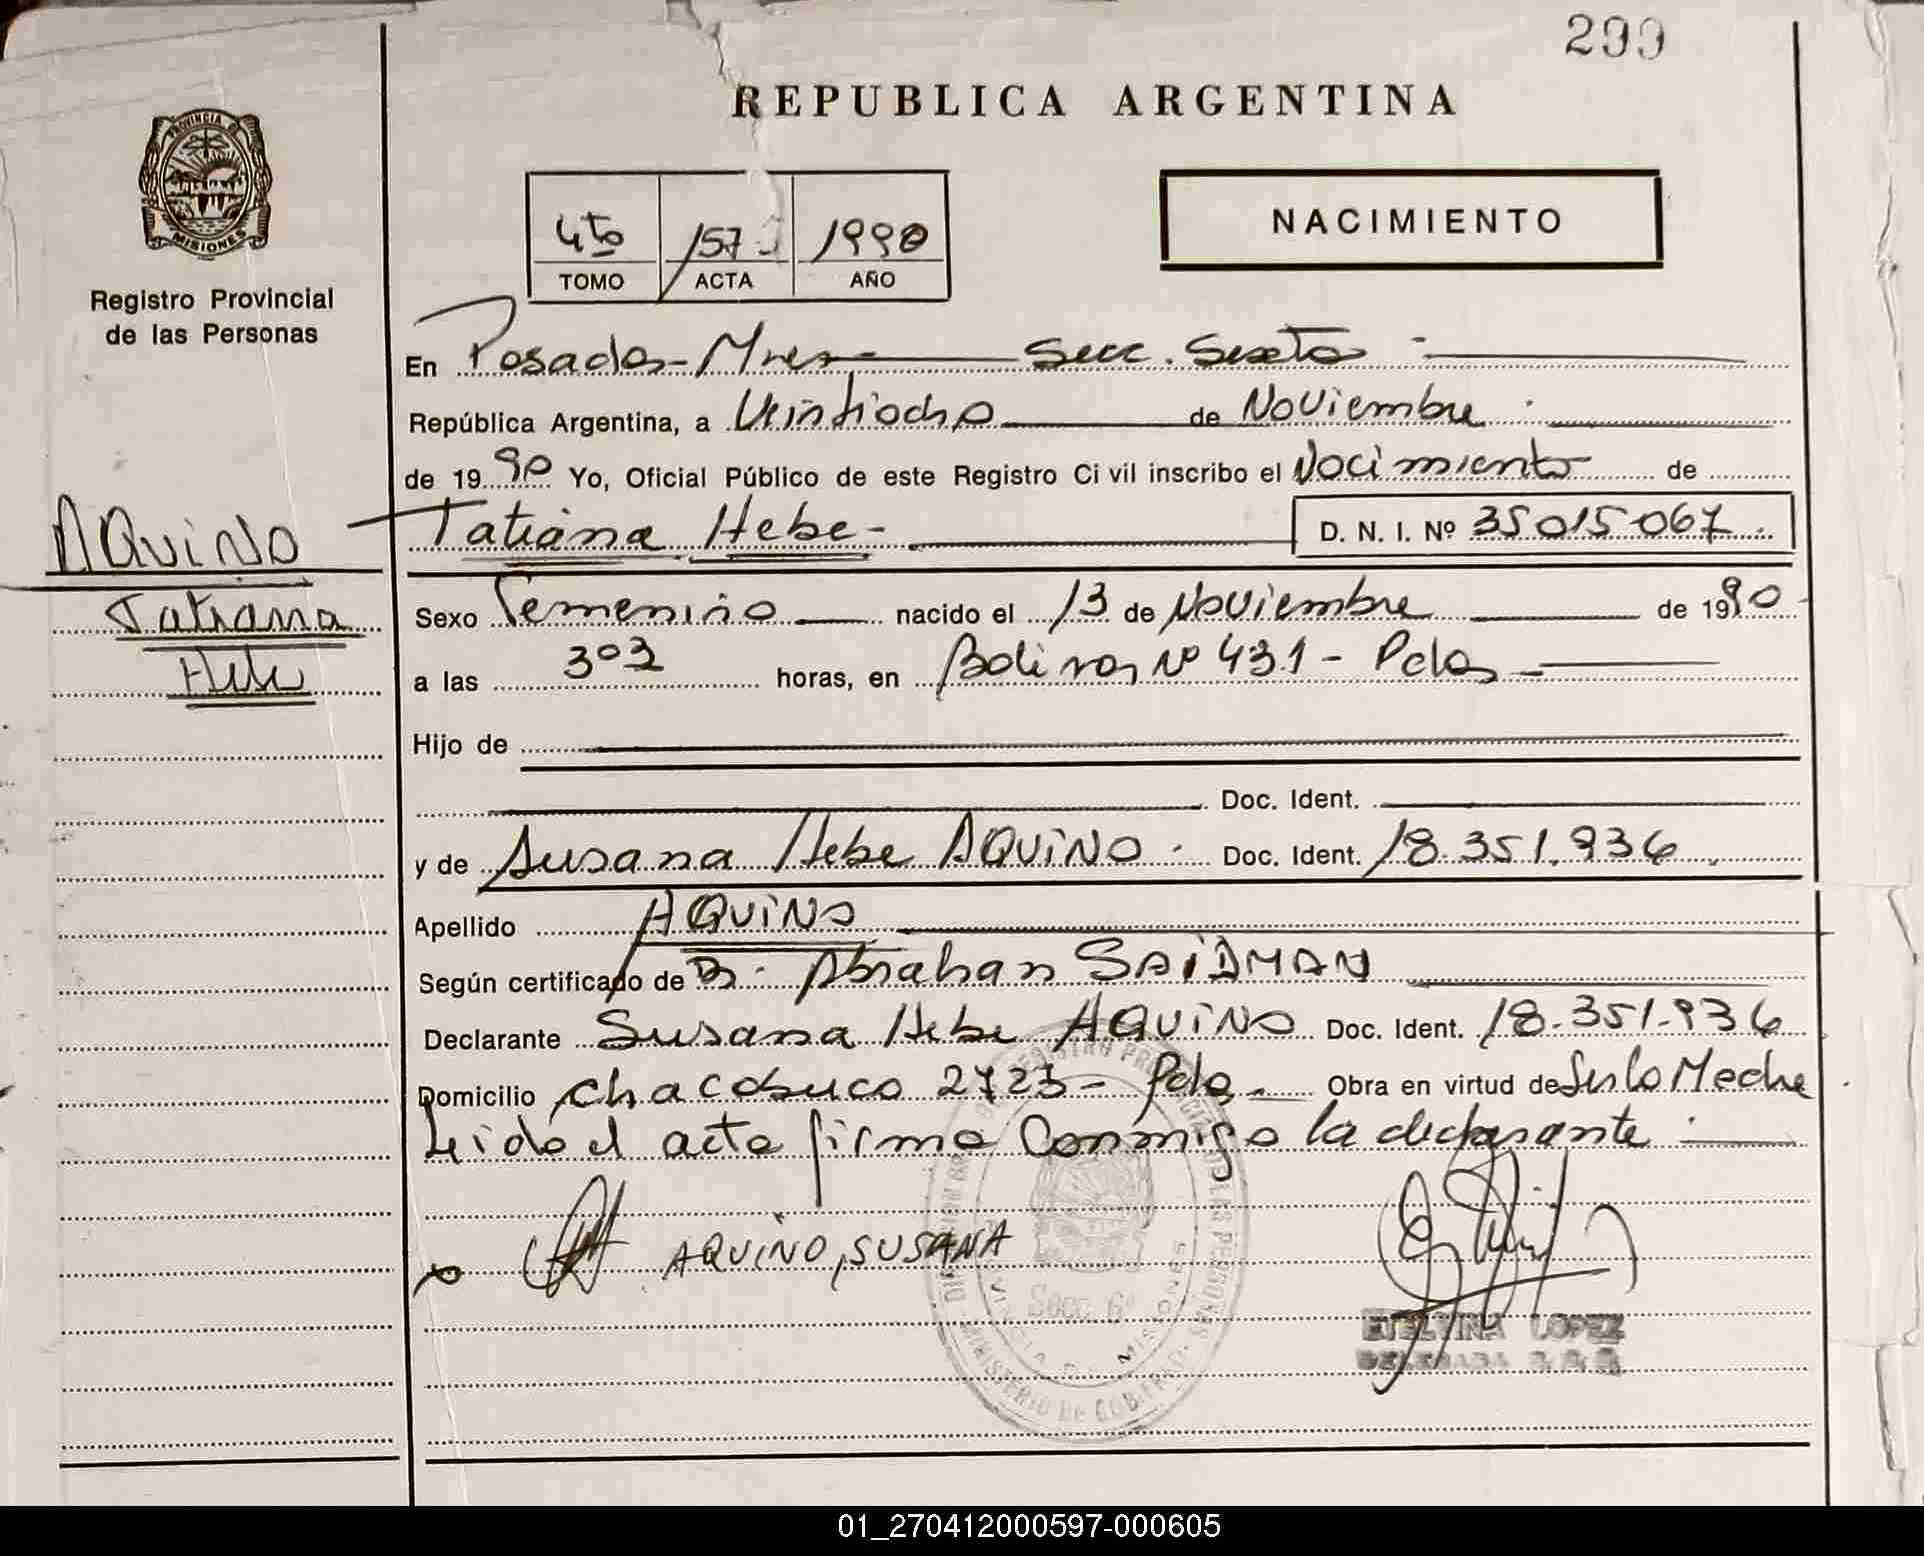 299
REPUBLICA ARGENTINA
PROVINCIA DE
MISIONES
Registro Provincial
de las Personas
4to
TOMO
157
ACTA
1990
AÑO
NACIMIENTO
En Posadas-Mnes- Secc. Sexta
República Argentina, a Veintiocho de Noviembre
de 1990 Yo, Oficial Público de este Registro Civil inscribo el Nacimiento de
AQUINO
Tatiana Hebe
Tatiana Hebe- D. N. I. Nº 35015067
Sexo Femenino nacido el 13 de Noviembre de 1990
a las 303 horas, en Bolivar Nº 431 - Pdas
Hijo de
Doc. Ident.
y de Susana Hebe AQUINO Doc. Ident. 18.351.936
Apellido AQUINO
Según certificado de Dr. Abrahan SAIDMAN
Declarante Susana Hebe AQUINO Doc. Ident. 18.351.936
Domicilio Chacabuco 2723 - Pdas Obra en virtud de Ser la Madre
Leido el acta firma conmigo la declarante
AQUINO, SUSANA
Secc. 6ª
MINISTERIO DE GOBIERNO
ETELVINA LOPEZ
DELEGADA
01_270412000597-000605